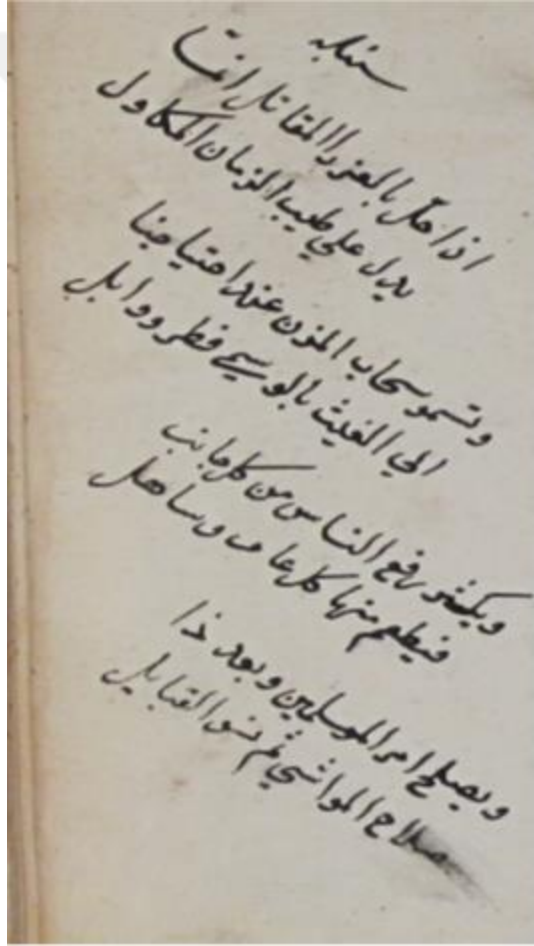 سنبله
اذا حل بالعذرا المقاتل انما
يدل علي طيب الزمان المحاول
وتسمو سحاب المزن عند احتياجنا
الي الغيث بالوسمي قطر ووابل
ويكثر رفع الناس من كل جانب
فيطعم منها كل عاف وساهل
ويصلح امر المسلمين وبعد ذا
صلاح المواشي ثم القبايل